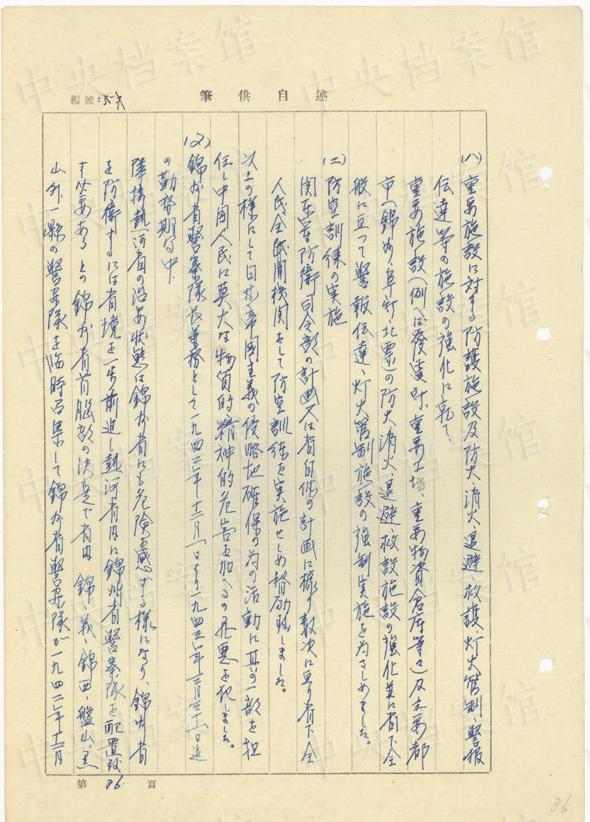 述自供筆
編號:
(八)重要施設に対する防護施設及防火、消火、退避、救護、灯火管制、警報
伝達等の施設の強化に就て、
重要施設(例へば発達所、重要工場、重要物資倉庫等々)及主要都
市(錦州、阜新、北票)の防火、消火、退避、救護施設の強化並に省下全
般に亘って警報伝達、灯火管制施設の強制実施を為さしめました。
(二)防空訓練の実施
関東軍防衛司令部の計画又は省自体の計画に様り数次に亘り省下全
人民、全民間機関をして防空訓練を実施せしめ督励致しました。
以上の様にして日本帝国主義の侵略地確保の為の活動に其の一部を担
任し中国人民に莫大な物質的精神的危害を加へるの罪悪を犯しました。
(2)錦州省警察隊長兼務として一九四二年十二月一日より一九四三年三月三十一日迄
の勤務期间中
隣接熱河省の治安状態は錦州省にも危険を感ずる様になり、錦州省
を防衛するには省境を一歩前進し熱河省内に錦州省警察隊を配置致
す必要あるとの錦州省首脳部の決定で省内、錦、義、錦西、盤山、黒
山外一縣の警察隊を臨時召集して錦州省警察隊が一九四二年十二月
第36頁
36
中央档案馆